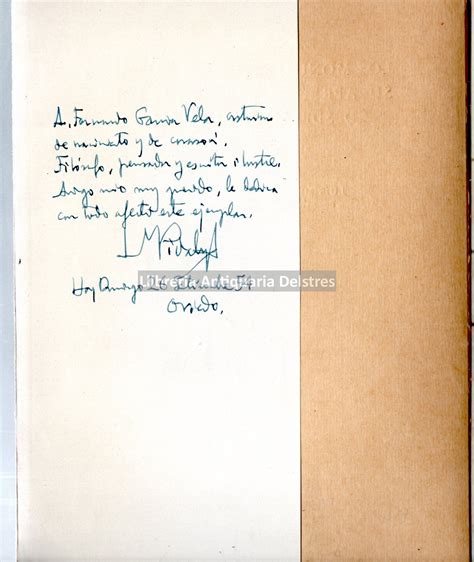 A. Fernando García Vela, asturiano
de nacimiento y de corazón.
Filósofo, pensador y escritor ilustre.
Amigo mio muy querido, le dedica
con todo afecto este ejemplar.
Hoy Domingo 20
Librería Antiquaria Delstres
Oviedo.